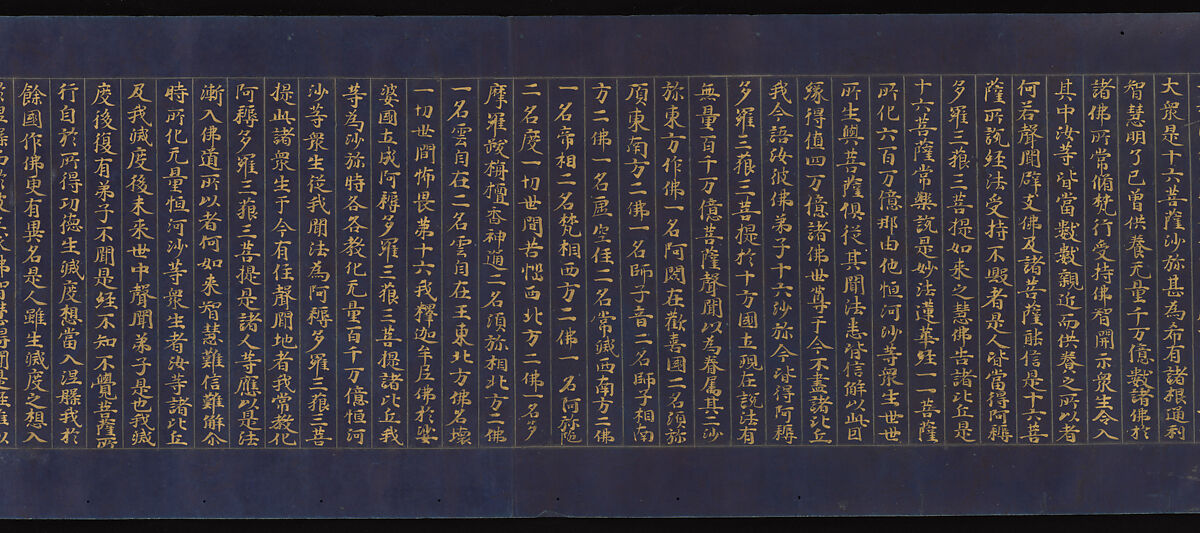 大衆是十六菩薩沙弥甚為希有諸根通利
智慧明了已曾供養无量千万億數諸佛於
諸佛所常脩梵行受持佛智開示衆生令入
其中汝等皆當數數親近而供養之所以者
何若聲聞辟支佛及諸菩薩能信是十六菩
薩所說経法受持不毀者是人皆當得阿耨
多羅三藐三菩提如来之慧佛告諸比丘是
十六菩薩常樂說是妙法蓮華経一一菩薩
所化六百万億那由他恒河沙等衆生世世
所生與菩薩俱從其聞法悉皆信解以此因
縁得值四万億諸佛世尊于今不盡諸比丘
我今語汝彼佛弟子十六沙弥今皆得阿耨
多羅三藐三菩提於十方國土現在說法有
無量百千万億菩薩聲聞以為眷屬其二沙
弥東方作佛一名阿閦在歡喜國二名須弥
頂東南方二佛一名師子音二名師子相南
方二佛一名虛空住二名常滅西南方二佛
一名帝相二名梵相西方二佛一名阿弥陁
二名度一切世間苦惱西北方二佛一名多
摩羅跋栴檀香神通二名須弥相北方二佛
一名雲自在二名雲自在王東北方佛名壞
一切世間怖畏弟十六我釋迦牟尼佛於娑
婆國土成阿耨多羅三藐三菩提諸比丘我
等為沙弥時各各教化无量百千万億恒河
沙等衆生從我聞法為阿耨多羅三藐三菩
提此諸衆生于今有住聲聞地者我常教化
阿耨多羅三藐三菩提是諸人等應以是法
漸入佛道所以者何如来智慧難信難解尒
時所化无量恒河沙等衆生者汝等諸比丘
及我滅度後未来世中聲聞弟子是也我滅
度後復有弟子不聞是経不知不覺菩薩所
行自於所得功德生滅度想當入涅槃我於
餘國作佛更有異名是人雖生滅度之想入